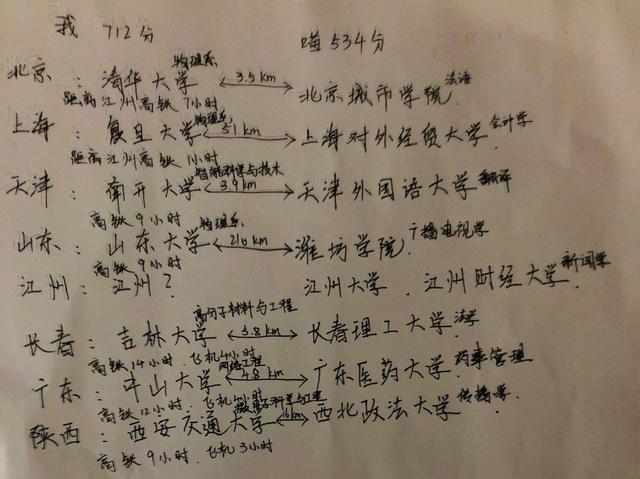 我 712分 喵534分
北京：清华大学 物理系 3.5km 北京城市学院 法语
距离江州高铁7小时
上海：复旦大学 物理系 51km 上海对外经贸大学 会计学
距离江州高铁1小时
天津：南开大学 智能科学与技术 3.9km 天津外国语大学 翻译
高铁9小时
山东：山东大学 物理系 216km 潍坊学院 广播电视学
高铁9小时
江州：江州？ 江州大学．江州财经大学 新闻学
长春：吉林大学 高分子材料与工程 3.8km 长春理工大学
高铁14小时．飞机4小时
广东：中山大学 网络工程 48km 广东医药大学 药事管理
高铁12小时．飞机 小时
陕西：西安交通大学 科学与工程 16km 西北政法大学 传播学
高铁9小时．飞机3小时